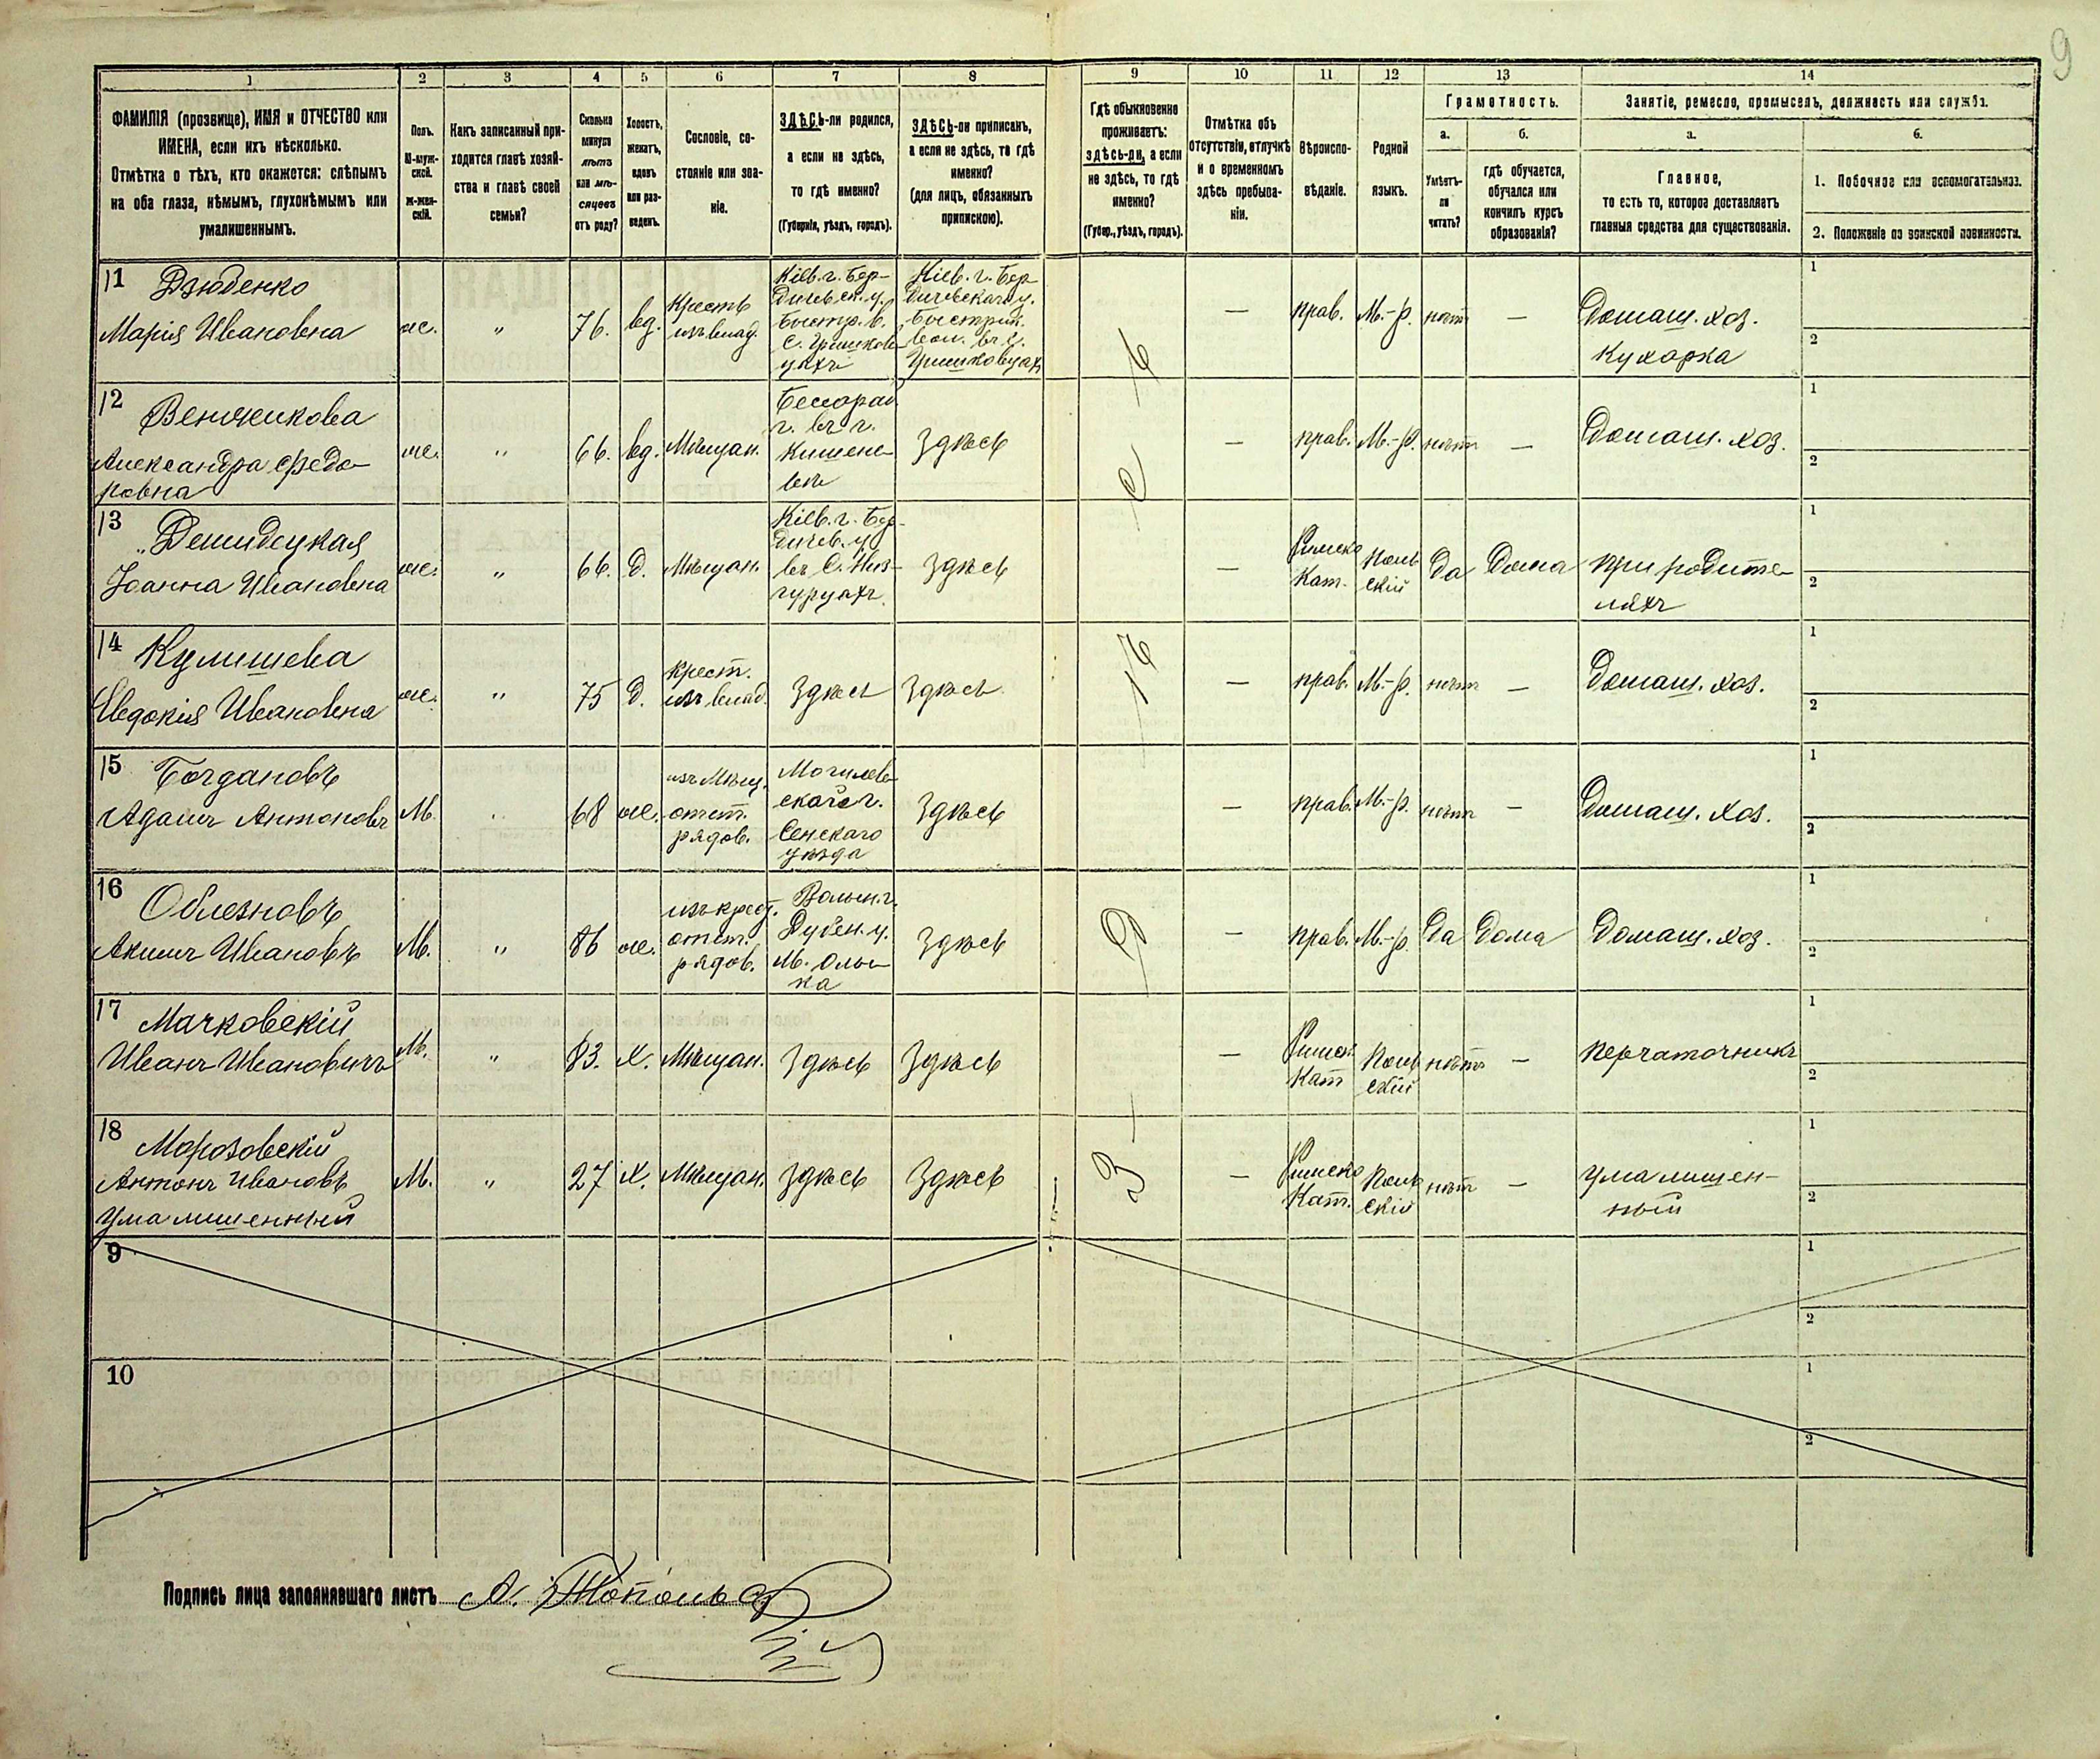 9
1
2
3
4
5
6
7
8
9
10
11
12
13
14
ФАМИЛІЯ (прозвище), ИМЯ и ОТЧЕСТВО или
ИМЕНА, если ихъ нѣсколько.
Отмѣтка о тѣхъ, кто окажется: слѣпымъ
на оба глаза, нѣмымъ, глухонѣмымъ или
умалишеннымъ.
Полъ.
М-муж-
ской.
Ж-жен-
скій.
Какъ записанный при-
ходится главѣ хозяй-
ства и главѣ своей
семьи?
Сколько
минуло
лѣтъ
или мѣ-
сяцевъ
отъ роду?
Холостъ,
женатъ,
вдовъ
или раз-
веденъ.
Сословіе, со-
стояніе или зва-
ніе.
ЗДѢСЬ-ли родился,
а если не здѣсь,
то гдѣ именно?
(Губернія, уѣздъ, городъ).
ЗДѢСЬ-ли приписанъ,
а если не здѣсь, то гдѣ
именно?
(для лицъ, обязанныхъ
припискою).
Гдѣ обыкновенно
проживаетъ:
здѣсь-ли, а если
не здѣсь, то гдѣ
именно?
(Губер., уѣздъ, городъ).
Отмѣтка объ
отсутствіи, отлучкѣ
и о временномъ
здѣсь пребыва-
ніи.
Вѣроиспо-
вѣданіе.
Родной
языкъ.
Грамотность.
а.
б.
Умѣетъ-
ли
читать?
гдѣ обучается,
обучался или
кончилъ курсъ
образованія?
Занятіе, ремесло, промыселъ, должность или служба.
а.
б.
Главное,
то есть то, которое доставляетъ
главныя средства для существованія.
1. Побочное или вспомогательное.
2. Положеніе по воинской повинности.
11 Дзюбенко
Марія Ивановна
ж.
"
76.
вд.
Кресть
изъ влад.
Кіев. г. Бер-
дичевск. у.
Быстр. в.
с. Гришков-
цахъ
Кіев. г. Бер-
дичевскаго у.
Быстриц.
вол. въ с.
Гришковцахъ
—
прав.
М.-р.
нѣтъ
—
Домаш. хоз.
Кухарка
1
2
12 Венчикова
Александра Федо-
ровна
ж.
"
66.
вд.
Мѣщан.
Бессараб.
г. въ г.
Кишене-
вѣ
Здѣсь
—
прав.
М.-р.
нѣтъ
—
Домаш. хоз.
1
2
13 Демидецкая
Іоанна Ивановна
ж.
"
66.
д.
Мѣщан.
Кіев. г. Бер-
дичев. у.
въ с. Низ-
гурцахъ
Здѣсь
—
Римско
Кат.
Поль
скій
Да
Дома
При родите-
ляхъ
1
2
14 Кулишева
Евдокія Ивановна
ж.
"
75
д.
Крест.
изъ влад.
Здѣсь
Здѣсь
—
прав.
М.-р.
нѣтъ
—
Домаш. хоз.
1
2
15 Богдановъ
Адамъ Антоновъ
М.
"
68
ж.
изъ Мѣщ.
отст.
рядов.
Могилев-
ской г.
Сенскаго
уѣзда
Здѣсь
—
прав.
М.-р.
нѣтъ
—
Домаш. хоз.
1
2
16 Облезновъ
Акимъ Ивановъ
М.
"
86
ж.
изъ крест.
отст.
рядов.
Волын. г.
Дубен. у.
м. Олы-
ка
Здѣсь
—
прав.
М.-р.
Да
Дома
Домаш. хоз.
1
2
17 Мачковскій
Иванъ Ивановичъ
М.
"
83.
х.
Мѣщан.
Здѣсь
Здѣсь
—
Римск
Кат
Поль
скій
нѣтъ
—
Перчаточникъ
1
2
18 Морозовскій
Антонъ Ивановъ
Умалишенный
М.
"
27
х.
Мѣщан.
Здѣсь
Здѣсь
—
Римско
Кат.
Поль
скій
нѣтъ
—
Умалишен-
ный
1
2
9
1
2
10
1
2
Подпись лица заполнявшаго листъ